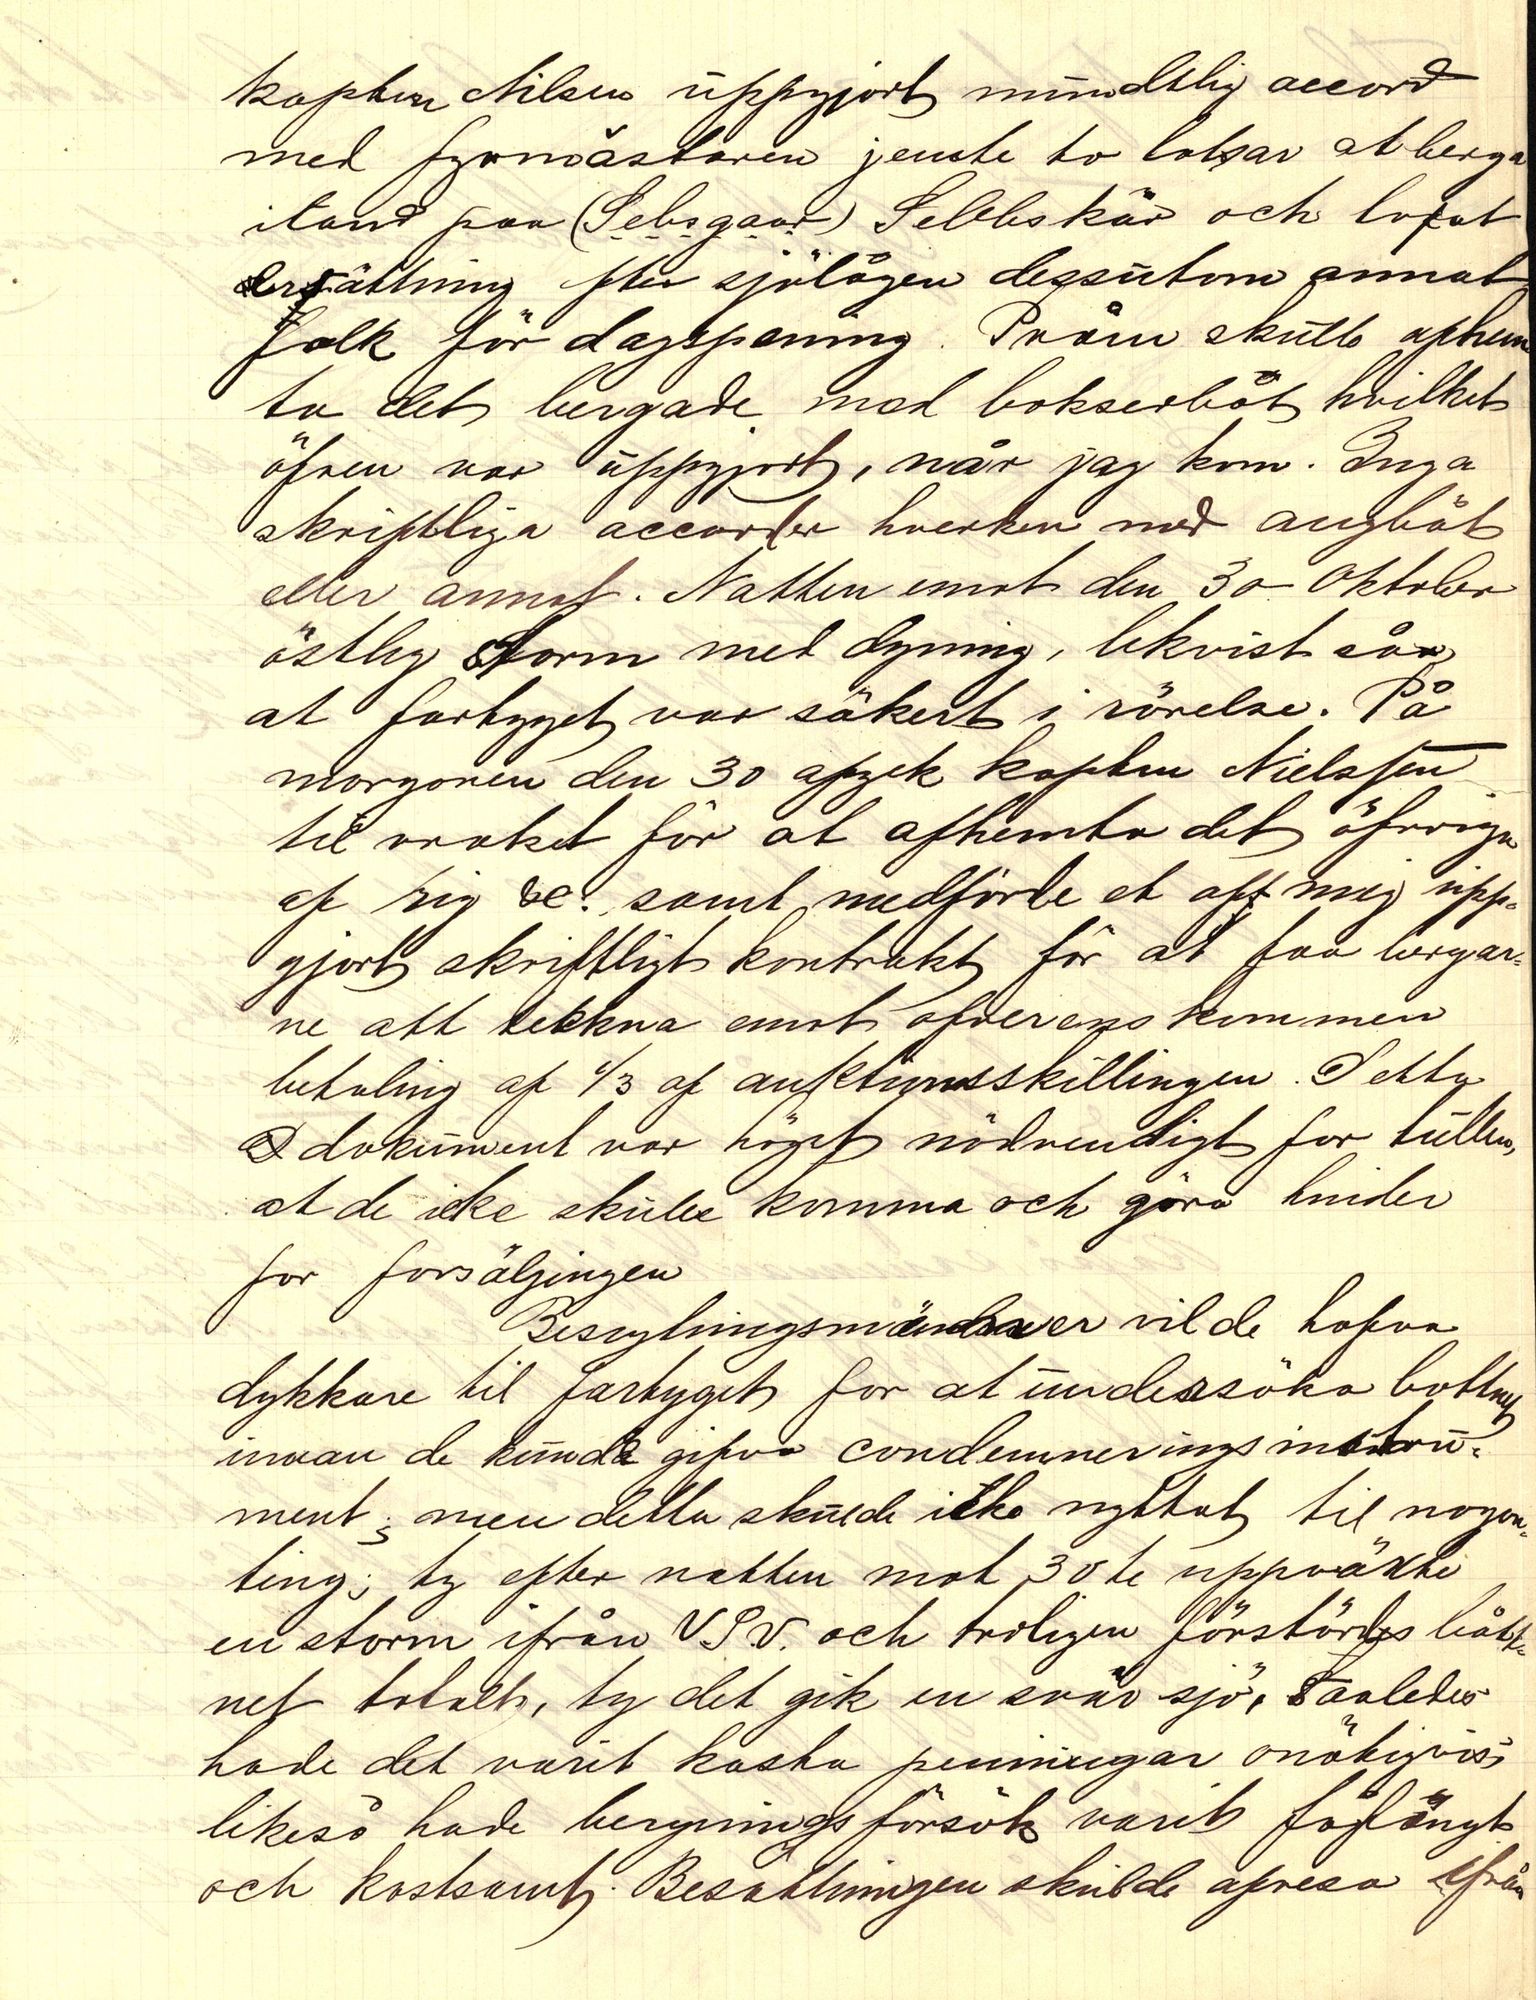 kapten Nilsen uppgjort mundtlig accord
med fyrmästaren jemte to lotsar at berga
iland paa (Sebsgaar) Sebbskär och lofvat
ersättning efter sjölagen dessutom annat
folk för dagspening. Pråm skulle afhem
ta det bergade med bokserbåt hvilket
öfven var uppgjort, når jag kom. Inga
skriftliga accorder hverken med angbåt
eller annat. Natten emot den 30 Oktober
östlig storm med dyning, likvist såe
at fartyget var säkert i rörelse. På
morgonen den 30 afgek kapten Nielssen
til vraket för at afhemta det öfvriga
af rig &c. samt medförde et aff mig upp-
gjort skriftligt kontrakt för at faa bergar-
ne att tekkna emot ofverenskommen
betaling af 1/3 af auktionsskillingen. Detta
dokument var höget nödvendigt for tullen,
at de icke skulle komma och göra hinder
for forsäljingen
Besigtningsmänner vilde hafva
dykkare til fartyget for at undersöka bottnet
innan de kunde gifva condemnerings instru-
ment; men detta skulde ikke nyttat til nogen-
ting; ty efter natten mot 30te uppväxte
en storm ifrån VSV. och troligen förstördes bått-
net totalt, ty det gik en svår sjö, Saaledes
hade det varit kasta penningar onötigvis,
likeså hade bergnings försök varit fåfängt
och kostsamt. Besattningen skulde afresa ifrån